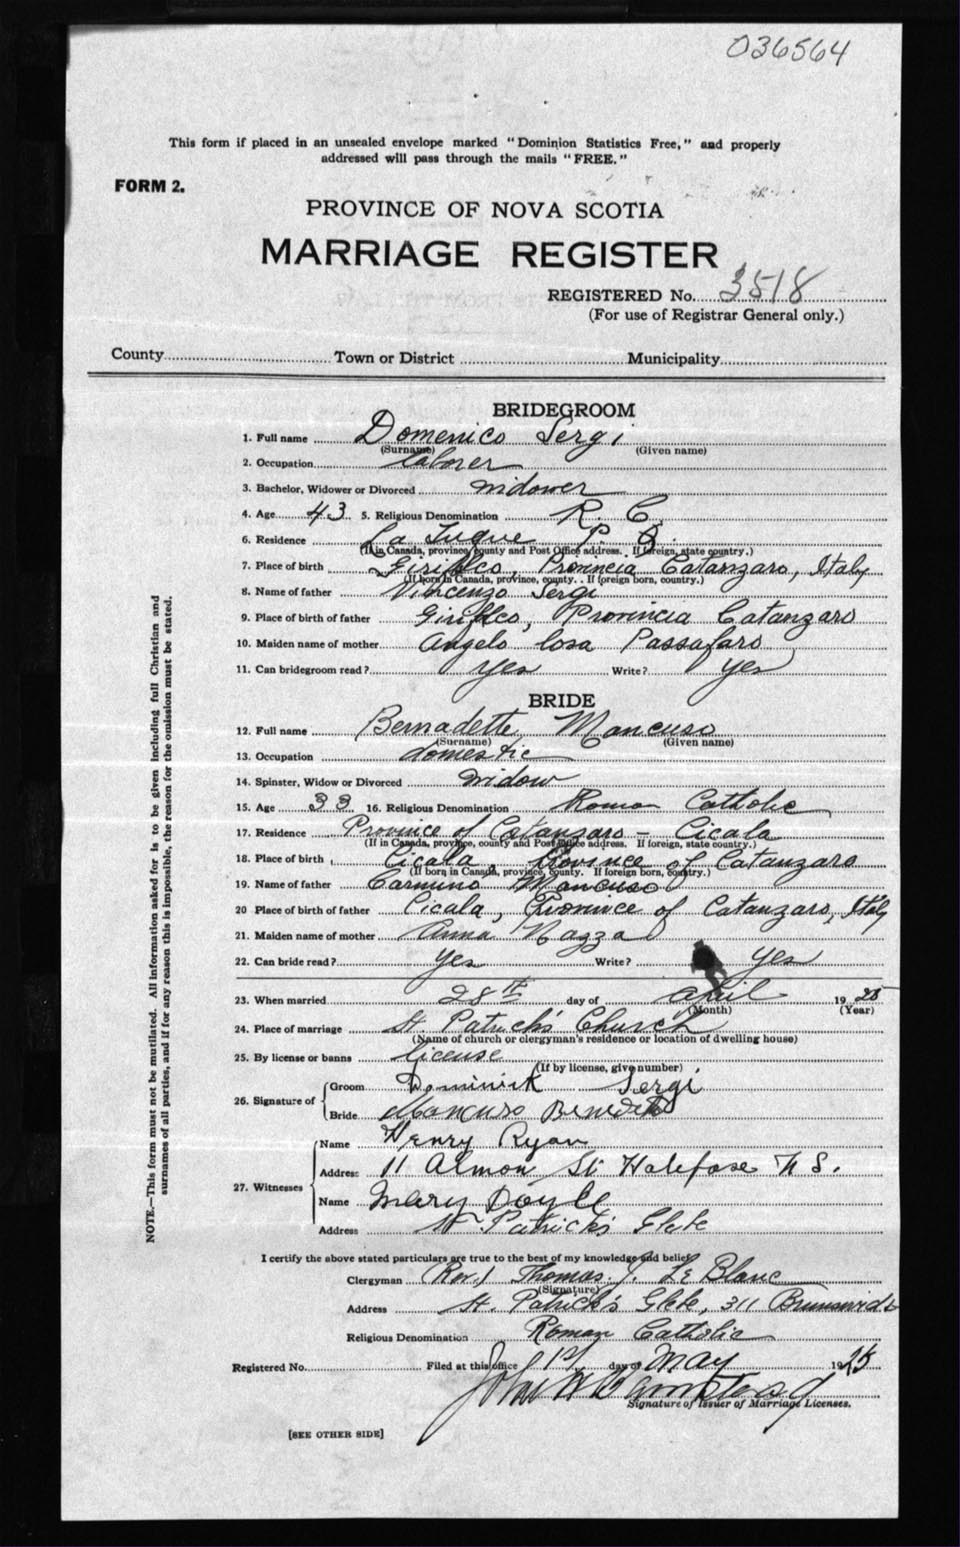 036564
This form if placed in an unsealed envelope marked "Dominion Statistics Free," and properly
addressed will pass through the mails "FREE."
FORM 2.
PROVINCE OF NOVA SCOTIA
MARRIAGE REGISTER
REGISTERED No. 3518
(For use of Registrar General only.)
County Town or District Municipality
BRIDEGROOM
1. Full name Domenico Sergi
(Surname) (Given name)
2. Occupation laborer
3. Bachelor, Widower or Divorced widower
4. Age 43 5. Religious Denomination R. C.
6. Residence La Tuque P Q.
(If in Canada, province, county and Post Office address. If foreign, state country.)
7. Place of birth Girifalco, Provincia Catanzaro, Italy
(If born in Canada, province, county. If foreign born, country.)
8. Name of father Vincenzo Sergi
9. Place of birth of father Girifalco, Provincia Catanzaro
10. Maiden name of mother Angelo Passafaro
11. Can bridegroom read? yes Write? yes
BRIDE
12. Full name Bernadette Mancuso
(Surname) (Given name)
13. Occupation domestic
14. Spinster, Widow or Divorced widow
15. Age 33 16. Religious Denomination Roman Catholic
17. Residence Province of Catanzaro - Cicala
(If in Canada, province, county and Post Office address. If foreign, state country.)
18. Place of birth Cicala, Province of Catanzaro
(If born in Canada, province, county. If foreign born, country.)
19. Name of father Carmino Mancuso
20 Place of birth of father Cicala, Province of Catanzaro, Italy
21. Maiden name of mother Anna Nazza
22. Can bride read? yes Write? yes
23. When married 28th day of April 1925
(Month) (Year)
24. Place of marriage St. Patrick's Church
(Name of church or clergyman's residence or location of dwelling house)
25. By license or banns license
(If by license, give number)
26. Signature of
Groom Dominick Sergi
Bride Mancuso
27. Witnesses
Name Henry Ryan
Address 11 Almon St Halefase N S.
Name Mary Doyle
Address St Patrick's Glebe
I certify the above stated particulars are true to the best of my knowledge and belief.
Clergyman (Rev.) Thomas J. LeBlanc
(Signature)
Address St. Patrick's Glebe, 311 Brunswick
Religious Denomination Roman Catholic
Registered No. Filed at this office 1st day of May 1925
John W
Signature of Issuer of Marriage Licenses.
[SEE OTHER SIDE]
NOTE.—This form must not be mutilated. All information asked for is to be given including full Christian and
surnames of all parties, and if for any reason this is impossible, the reason for the omission must be stated.